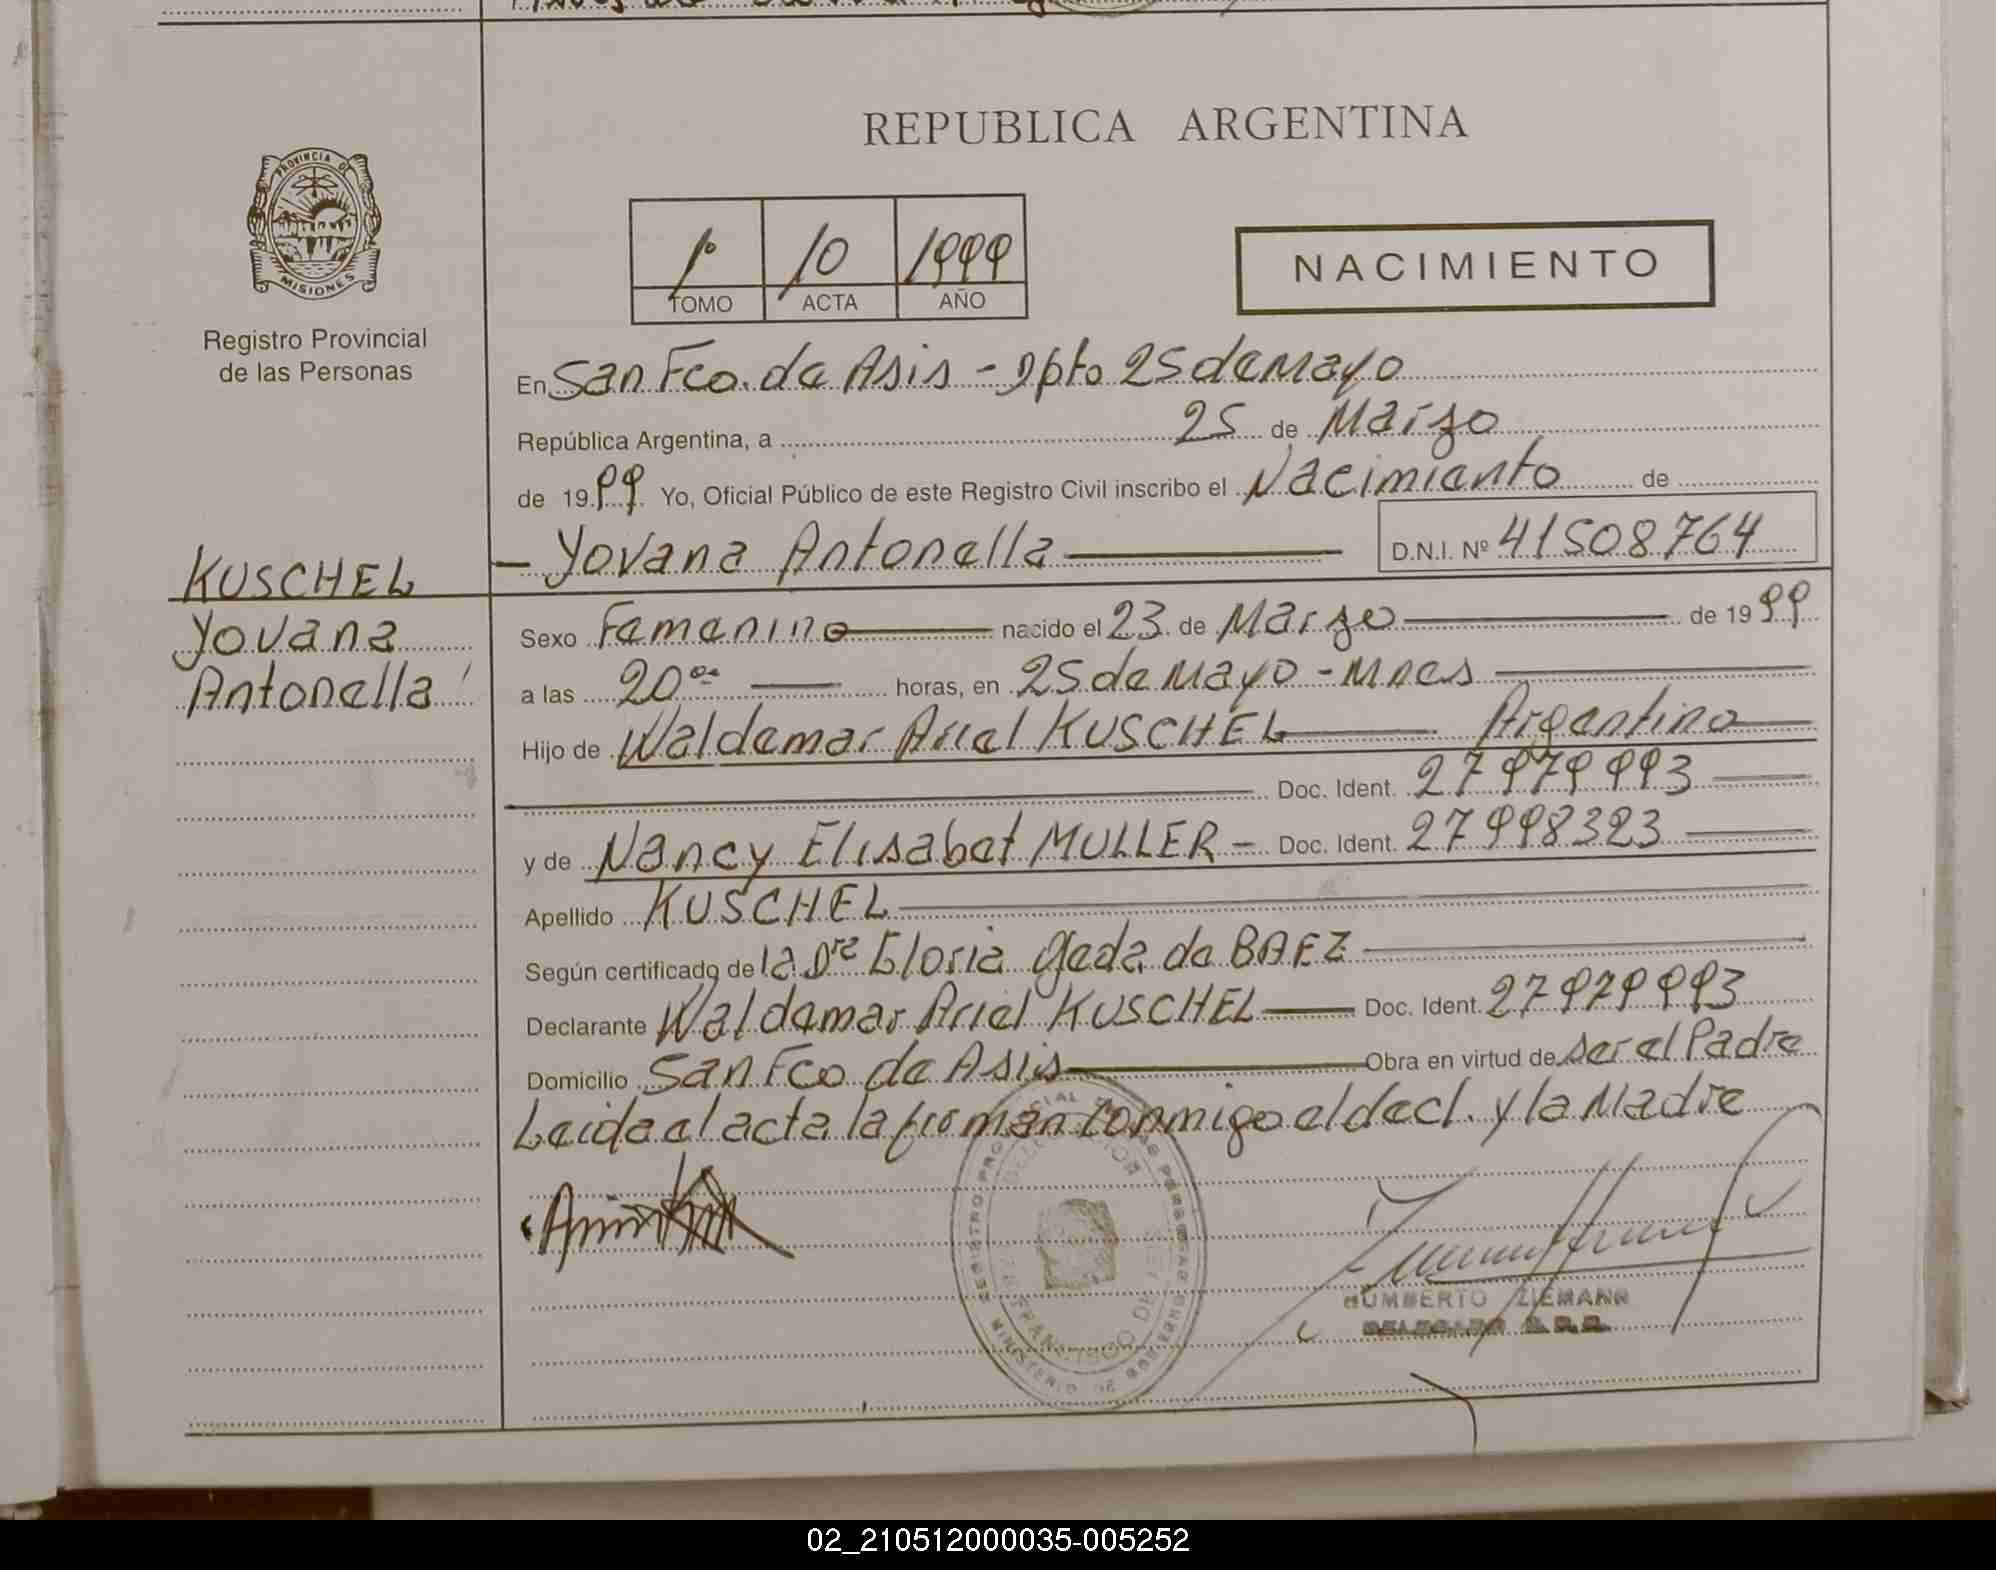 REPUBLICA ARGENTINA
PROVINCIA DE
MISIONES
Registro Provincial
de las Personas
1º 10 1999
TOMO ACTA AÑO
NACIMIENTO
En San Fco. de Asis - Dpto 25 de Mayo
República Argentina, a 25 de Marzo
de 1999 Yo, Oficial Público de este Registro Civil inscribo el Nacimiento de
Yovana Antonella D.N.I. Nº 41508764
KUSCHEL
Yovana
Antonella
Sexo Femenino nacido el 23 de Marzo de 1999
a las 20 horas, en 25 de Mayo - Mnes
Hijo de Waldemar Ariel KUSCHEL Argentino
Doc. Ident. 27979993
y de Nancy Elisabet MULLER - Doc. Ident. 27998323
Apellido KUSCHEL
Según certificado de la Dra Gloria Ojeda de BAEZ
Declarante Waldemar Ariel KUSCHEL Doc. Ident. 27979993
Domicilio San Fco de Asis Obra en virtud de ser el Padre
Leida el acta la firman conmigo el decl. y la Madre
HUMBERTO ZIEMANN
DELEGADO
02_210512000035-005252